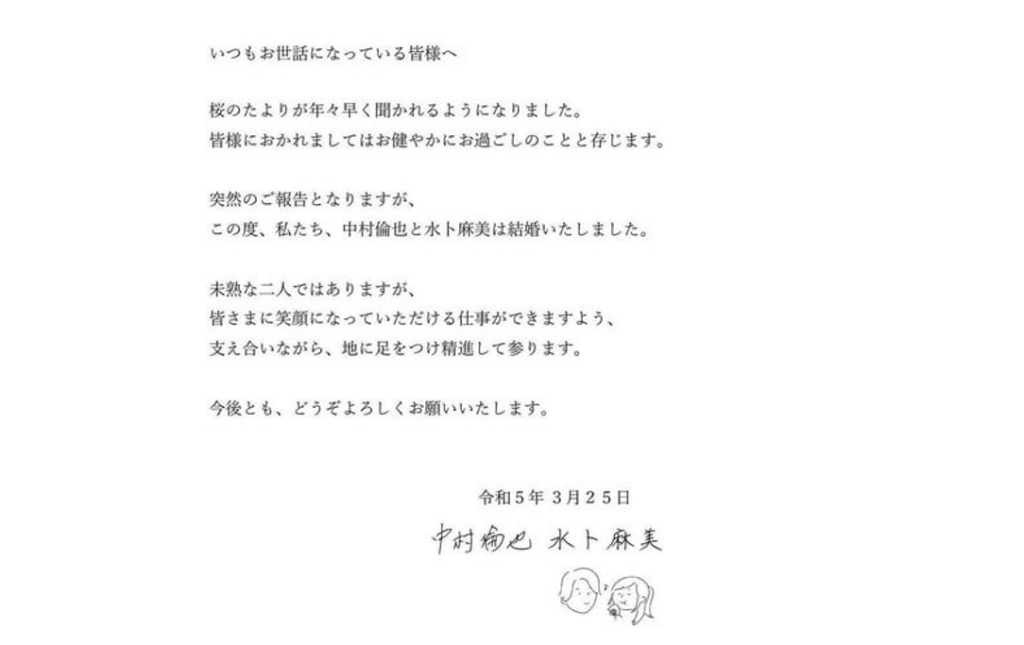 いつもお世話になっている皆様へ
桜のたよりが年々早く聞かれるようになりました。
皆様におかれましてはお健やかにお過ごしのことと存じます。
突然のご報告となりますが、
この度、私たち、中村倫也と水卜麻美は結婚いたしました。
未熟な二人ではありますが、
皆さまに笑顔になっていただける仕事ができますよう、
支え合いながら、地に足をつけ精進して参ります。
今後とも、どうぞよろしくお願いいたします。
令和５年 ３月２５日
中村倫也 水卜麻美